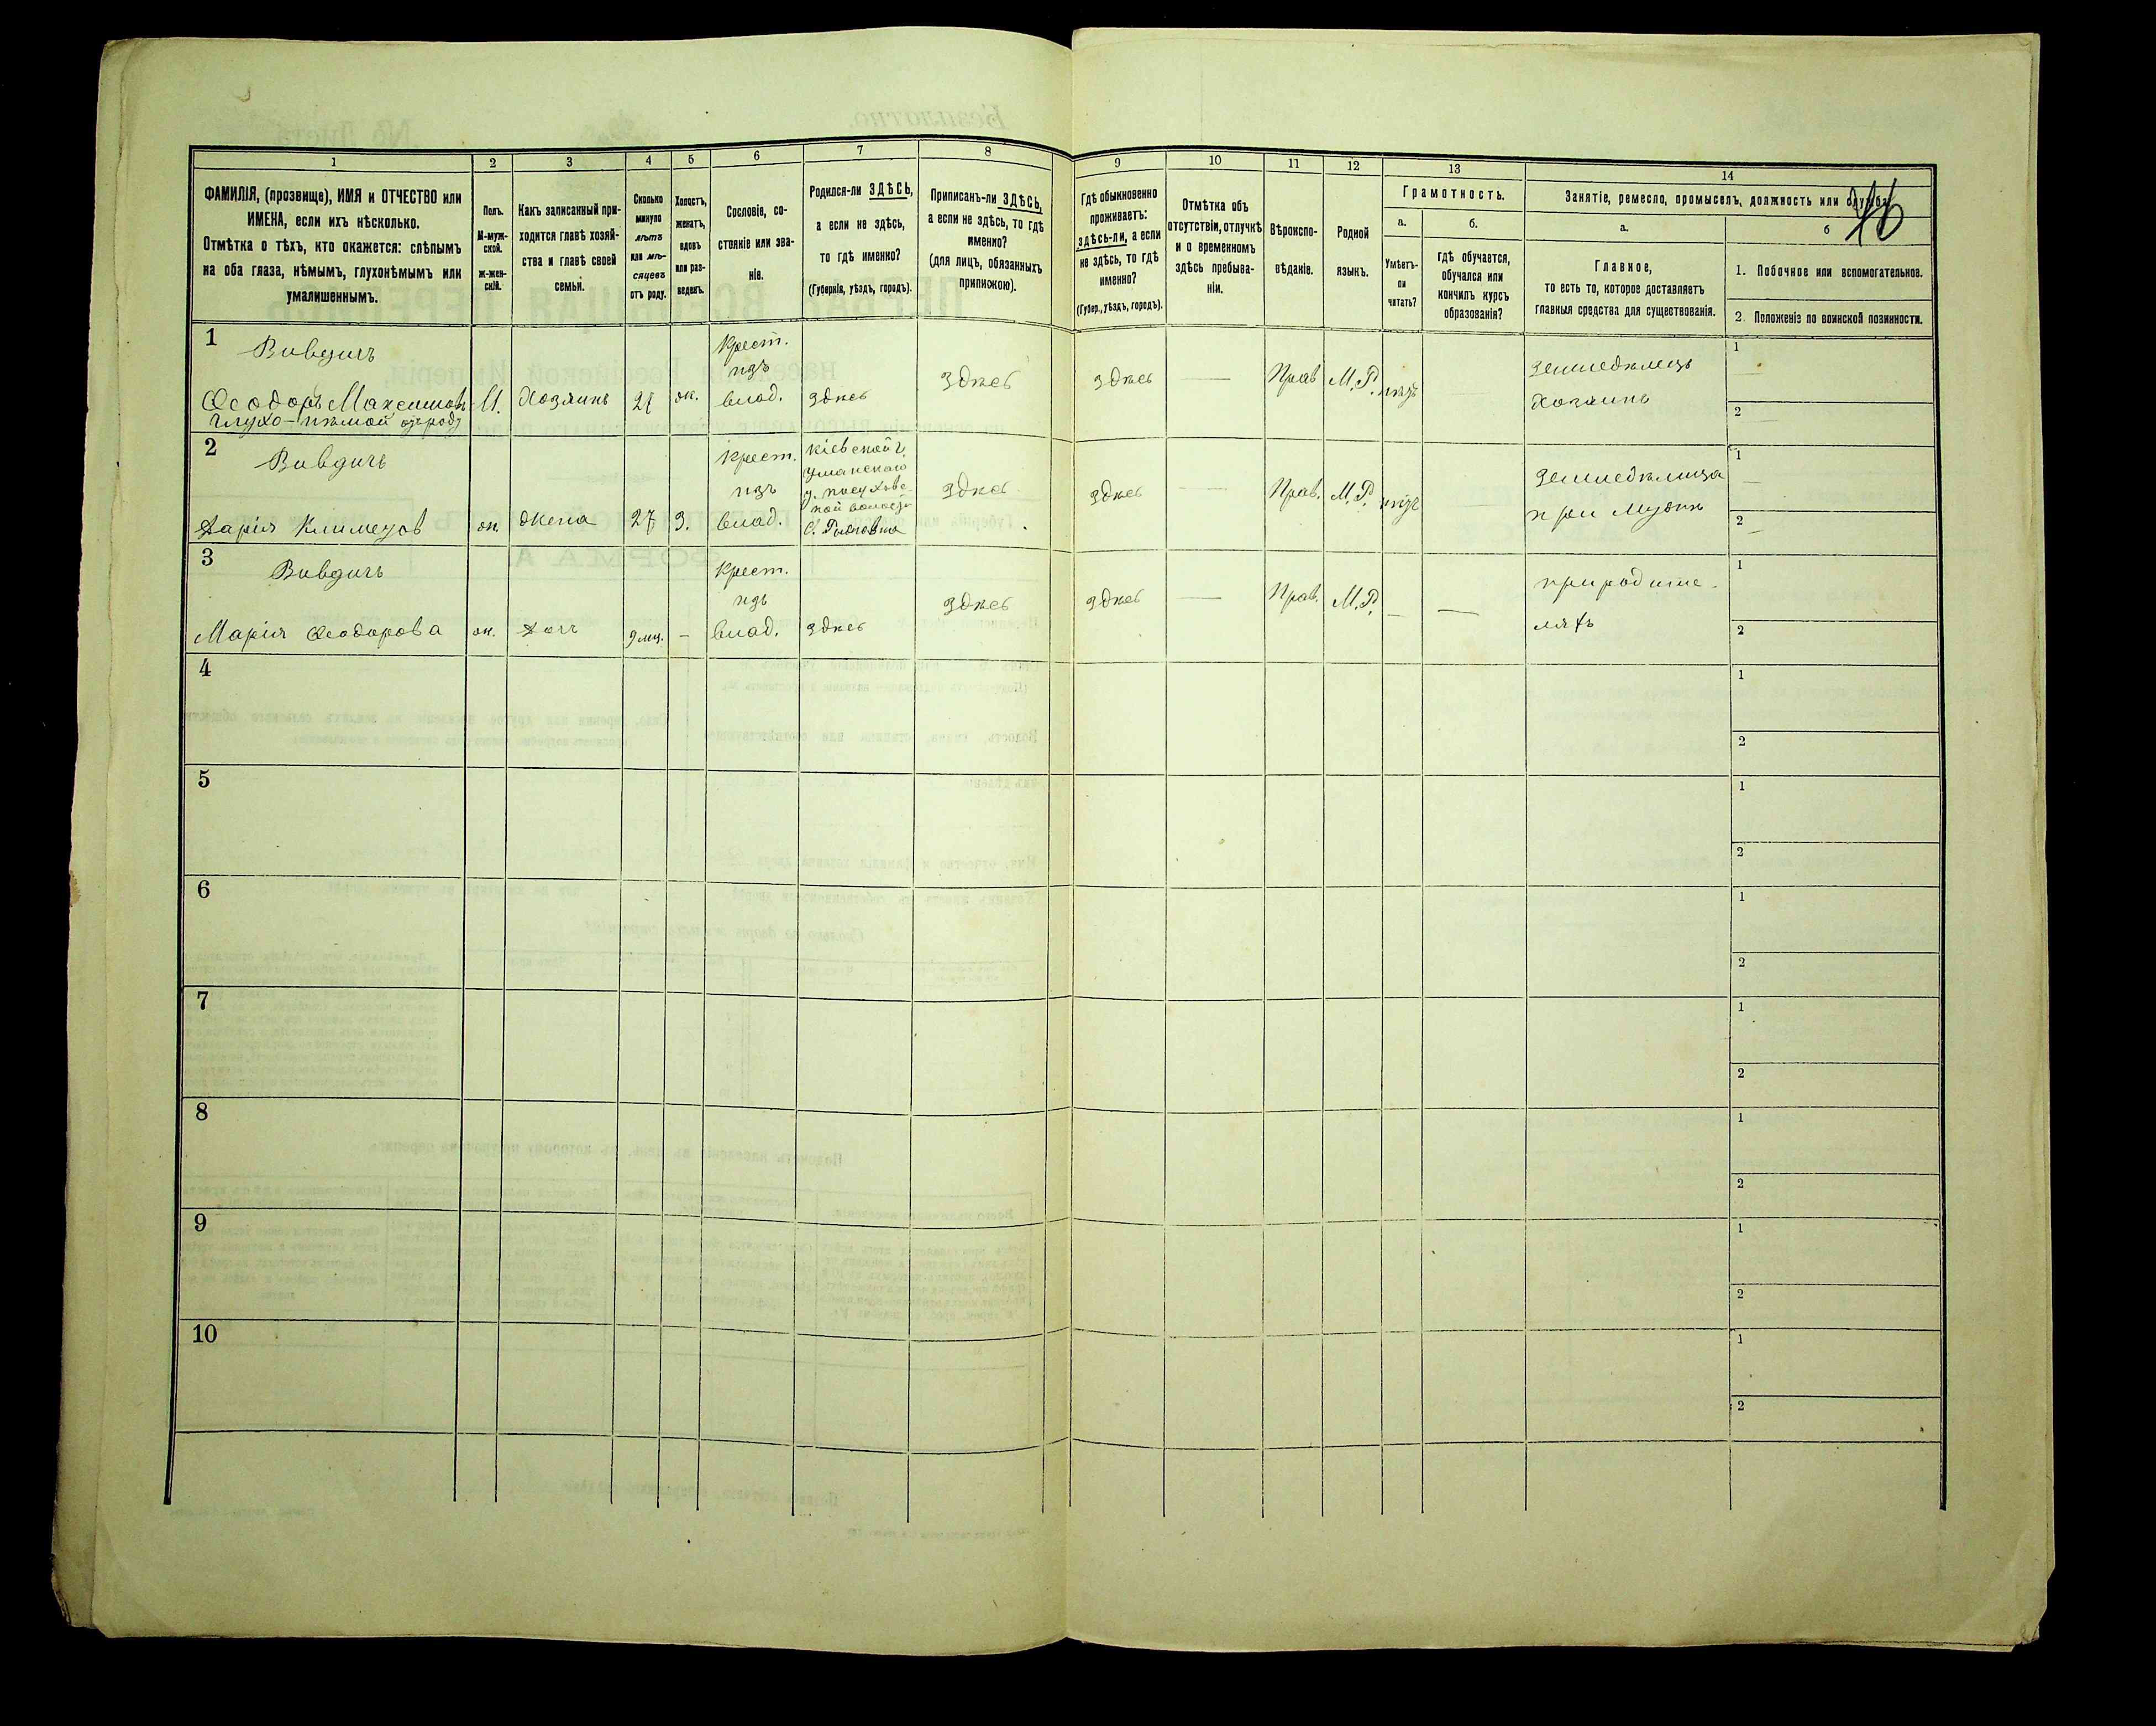 1
2
3
4
5
6
7
8
9
10
11
12
13
14
ФАМИЛІЯ, (прозвище), ИМЯ и ОТЧЕСТВО или
ИМЕНА, если ихъ нѣсколько.
Отмѣтка о тѣхъ, кто окажется: слѣпымъ
на оба глаза, нѣмымъ, глухонѣмымъ или
умалишеннымъ.
Полъ.
М-муж-
ской.
Ж-жен-
скій.
Какъ записанный при-
ходится главѣ хозяй-
ства и главѣ своей
семьи.
Сколько
минуло
лѣтъ
или мѣ-
сяцевъ
отъ роду.
Холостъ,
женатъ,
вдовъ
или раз-
веденъ.
Сословіе, со-
стояніе или зва-
ніе.
Родился-ли ЗДѢСЬ,
а если не здѣсь,
то гдѣ именно?
(Губернія, уѣздъ, городъ).
Приписанъ-ли ЗДѢСЬ,
а если не здѣсь, то гдѣ
именно?
(для лицъ, обязанныхъ
припискою).
Гдѣ обыкновенно
проживаетъ:
здѣсь-ли, а если
не здѣсь, то гдѣ
именно?
(Губер., уѣздъ, городъ).
Отмѣтка объ
отсутствіи, отлучкѣ
и о временномъ
здѣсь пребыва-
ніи.
Вѣроиспо-
вѣданіе.
Родной
языкъ.
Грамотность.
а.
Умѣетъ-
ли
читать?
б.
гдѣ обучается,
обучался или
кончилъ курсъ
образованія?
Занятіе, ремесло, промыселъ, должность или служба.
а.
Главное,
то есть то, которое доставляетъ
главныя средства для существованія.
б
1. Побочное или вспомогательное.
2. Положеніе по воинской повинности.
1
Вивдичъ
Ѳеодоръ Максимовъ
глухо-нѣмой отъ роду
М.
Хозяинъ
ж.
Крест.
изъ
влад.
здѣсь
здѣсь
здѣсь
—
Прав
М.Р.
нѣтъ
—
Земледѣлецъ
хозяинъ
1
—
2
2
Вивдичъ
Дарія Климетов
ж.
жена
27
З.
крест.
изъ
влад.
Кіевской г.
Уманскаго
здѣсь
здѣсь
—
Прав.
М.Р.
нѣтъ
Земледѣлица
при мужѣ
1
—
2
—
3
Вивдичъ
Марія Ѳеодорова
ж.
дочь
9 мц.
—
Крест.
изъ
влад.
здѣсь
здѣсь
здѣсь
—
Прав.
М.Р.
—
—
при родите-
ляхъ
1
2
4
1
2
5
1
2
6
1
2
7
1
2
8
1
2
9
1
2
10
1
2